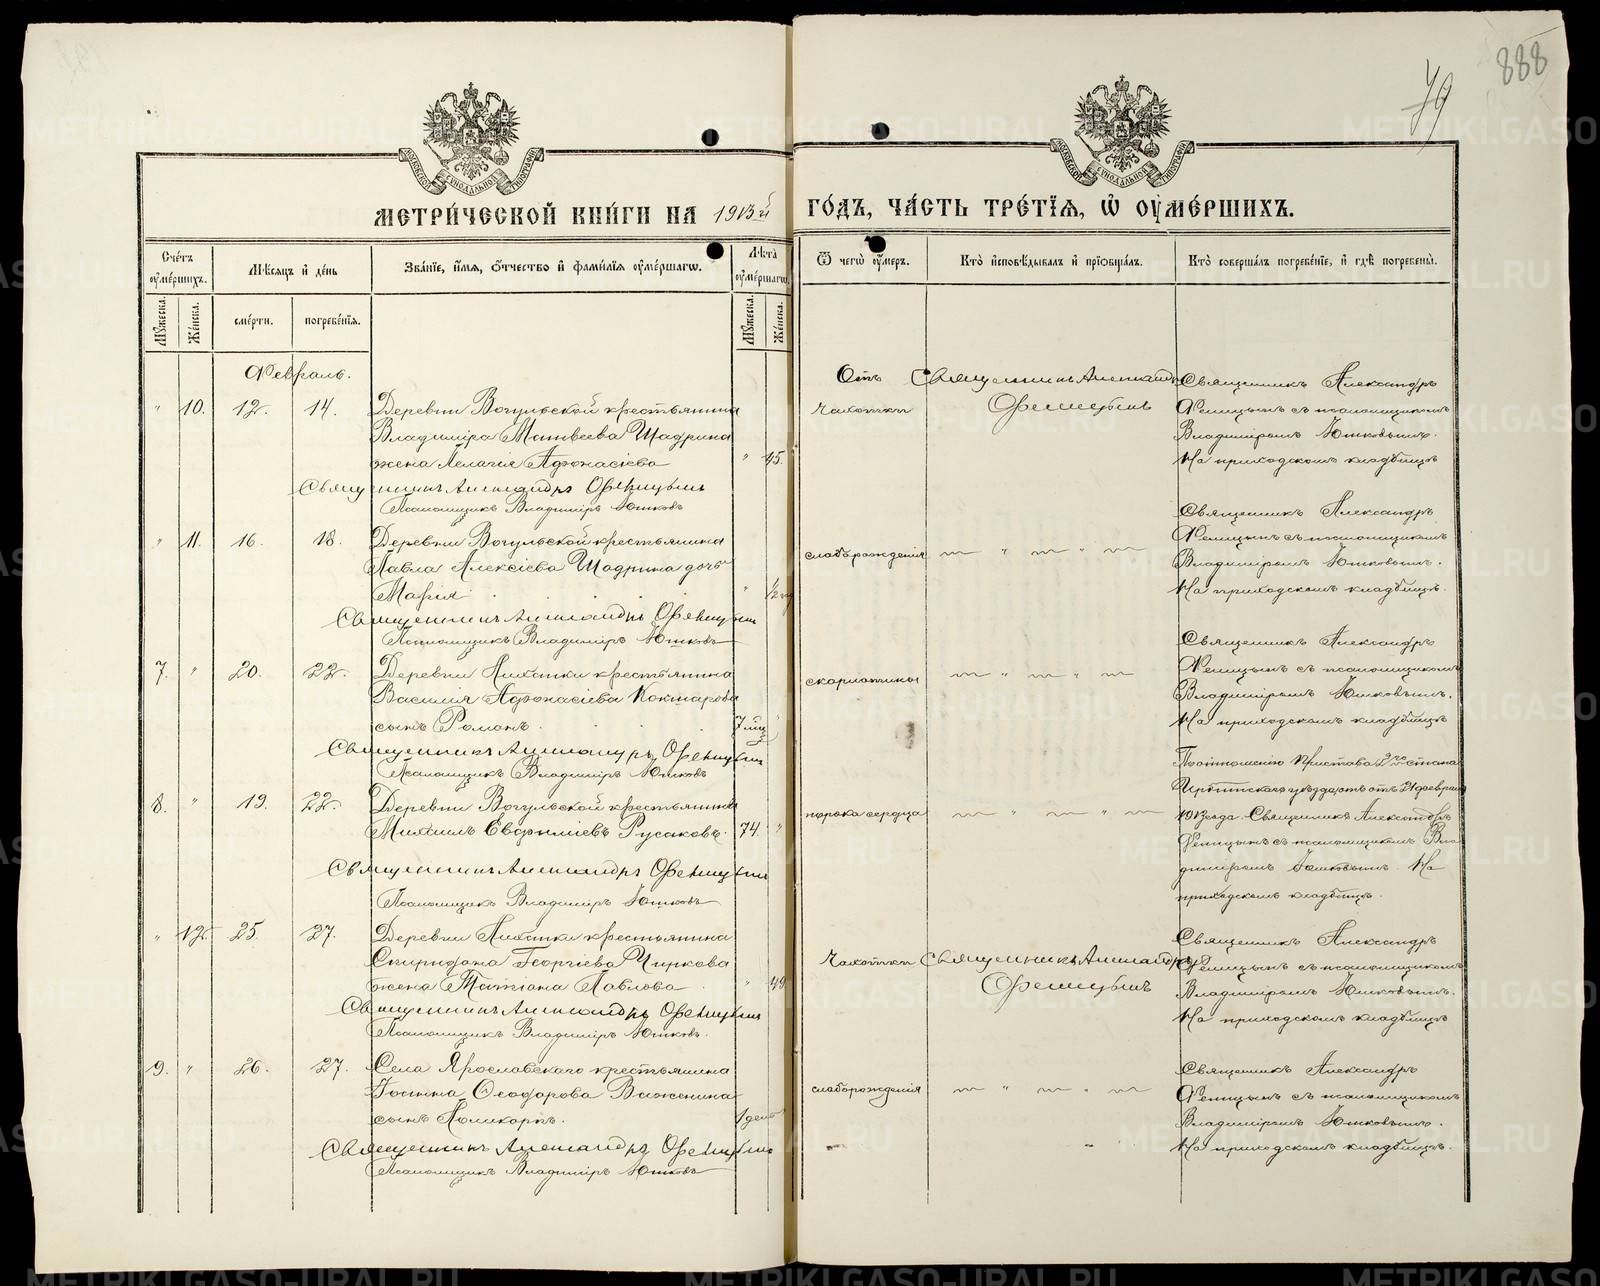 888
79
МЕТРИ́ЧЕСКОЙ КНИ́ГИ НА 1913й ГО́ДЪ, ЧА́СТЬ ТРЕ́ТIѦ, Ѡ҆ ОУ҆МЕ́РШИХЪ.
Сче́тъ оу҆ме́ршихъ.
Мѣ́сѧцъ и҆ де́нь
Зва́нїе, и҆́мѧ, ѻ҆́тчество и҆ фами́лїѧ оу҆ме́ршагѡ.
Лѣ́та оу҆ме́ршагѡ.
Ѿ чегѡ̀ оу҆́меръ.
Кто̀ и҆сповѣ́дывалъ и҆ прїѡбща́лъ.
Кто̀ соверша́лъ погребе́нїе, и҆ гдѣ̀ погребены̀.
Мꙋ́жеска. Же́нска.
сме́рти. погребе́нїѧ.
Мꙋ́жеска. Же́нска.
Февраль.
" 10. 12. 14. Деревни Вогульской крестьянина
Владиміра Матвеева Шадрина
жена Пелагія Афонасіева " 45.
Священникъ Александръ
Псаломщикъ Владиміръ Юшковъ
Отъ чахотки
Священникъ Александръ
Священникъ Александръ
съ псаломщикомъ
Владиміромъ Юшковымъ.
На приходскомъ кладбищѣ
" 11. 16. 18. Деревни Вогульской крестьянина
Павла Алексіева Шадрина дочь
Марія " 1/2
Священникъ Александръ
Псаломщикъ Владиміръ Юшковъ
слаборожденія
Священникъ Александръ
съ псаломщикомъ
Владиміромъ Юшковымъ.
На приходскомъ кладбищѣ.
7. " 20. 22. Деревни крестьянина
Василія Афонасіева
сынъ Романъ.
Священникъ Александръ
Псаломщикъ Владиміръ Юшковъ
скарлатины
Священникъ Александръ
съ псаломщикомъ
Владиміромъ Юшковымъ.
На приходскомъ кладбищѣ
8. " 19. 22. Деревни Вогульской крестьянинъ
Михаилъ Русаковъ. 74. "
Священникъ Александръ
Псаломщикъ Владиміръ Юшковъ
порока сердца
По отношенію Пристава стана
Ирбитскаго уѣзда отъ 21 февраля
1913 года. Священникъ Александръ
съ псаломщикомъ Вла
диміромъ Юшковымъ. На
приходскомъ кладбищѣ.
" 12. 25. 27. Деревни крестьянина
Спиридона Георгіева Чиркова
жена Татіана Павлова " 49
Священникъ Александръ
Псаломщикъ Владиміръ Юшковъ.
Чахотки
Священникъ Александръ
Священникъ Александръ
съ псаломщикомъ
Владиміромъ Юшковымъ.
На приходскомъ кладбищѣ
9. " 26. 27. Села Ярославскаго крестьянина
Іоанна Ѳеодорова Важенина
сынъ Поликарпъ. 1 день
Священникъ Александръ
Псаломщикъ Владиміръ Юшковъ
слаборожденія
Священникъ Александръ
съ псаломщикомъ
Владиміромъ Юшковымъ.
На приходскомъ кладбищѣ.
METRIKI.GASO-URAL.RU